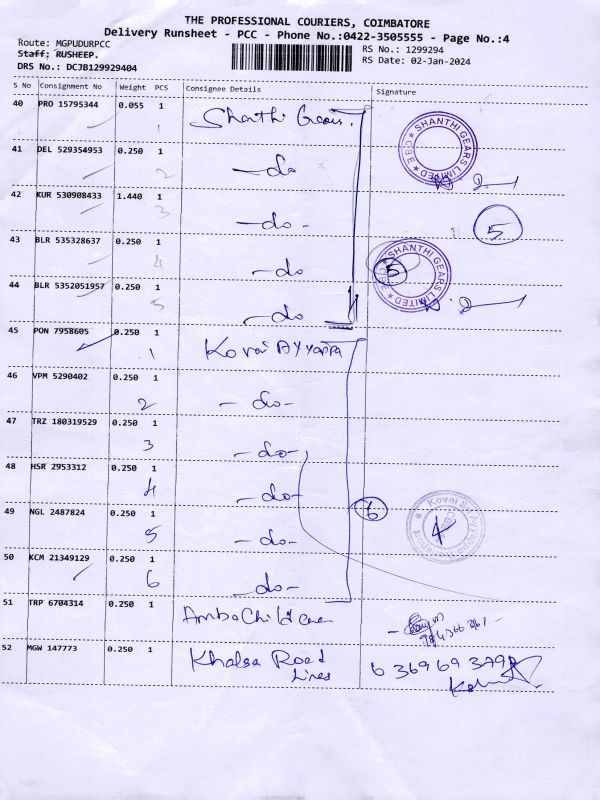 THE PROFESSIONAL COURIERS, COIMBATORE
Delivery Runsheet - PCC - Phone No.:0422-3505555 - Page No.:4
Route: MGPUDURPCC RS No.: 1299294
Staff: RUSHEEP. RS Date: 02-Jan-2024
DRS No.: DCJB129929404
S No Consignment No Weight PCS Consignee Details Signature
40 PRO 15795344 0.055 1 Shanthi Gears.
1
SHANTHI GEARS LIMITED
41 DEL 529354953 0.250 1 -do
2
42 KUR 530908433 1.440 1 -do-
3 5
43 BLR 535328637 0.250 1 -do
4 5
SHANTHI GEARS LIMITED
44 BLR 5352051957 0.250 1 -do
5
45 PON 7958605 0.250 1 Kovai Ayyappa
1
46 VPM 5290402 0.250 1 -do-
2
47 TRZ 180319529 0.250 1 -do-
3
48 HSR 2953312 0.250 1 -do-
4
49 NGL 2487824 0.250 1 -do-
5 6 4
50 KCM 21349129 0.250 1 -do-
6
51 TRP 6704314 0.250 1 Ambo Child Care
52 MGW 147773 0.250 1 Khalsa Road
Lines